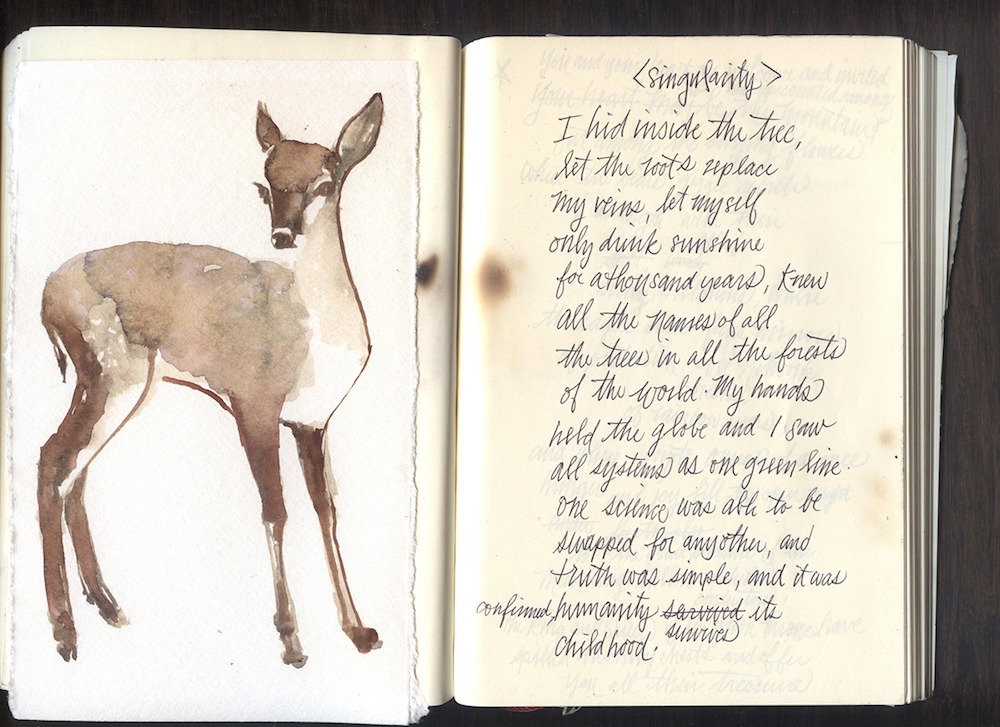 <singularity>
I hid inside the tree,
let the roots replace
my veins, let myself
only drink sunshine
for a thousand years, knew
all the names of all
the trees in all the forests
of the world. My hands
held the globe and I saw
all systems as one green line.
one science was able to be
swapped for any other, and
truth was simple, and it was
confirmed, humanity survived its
survives
childhood.